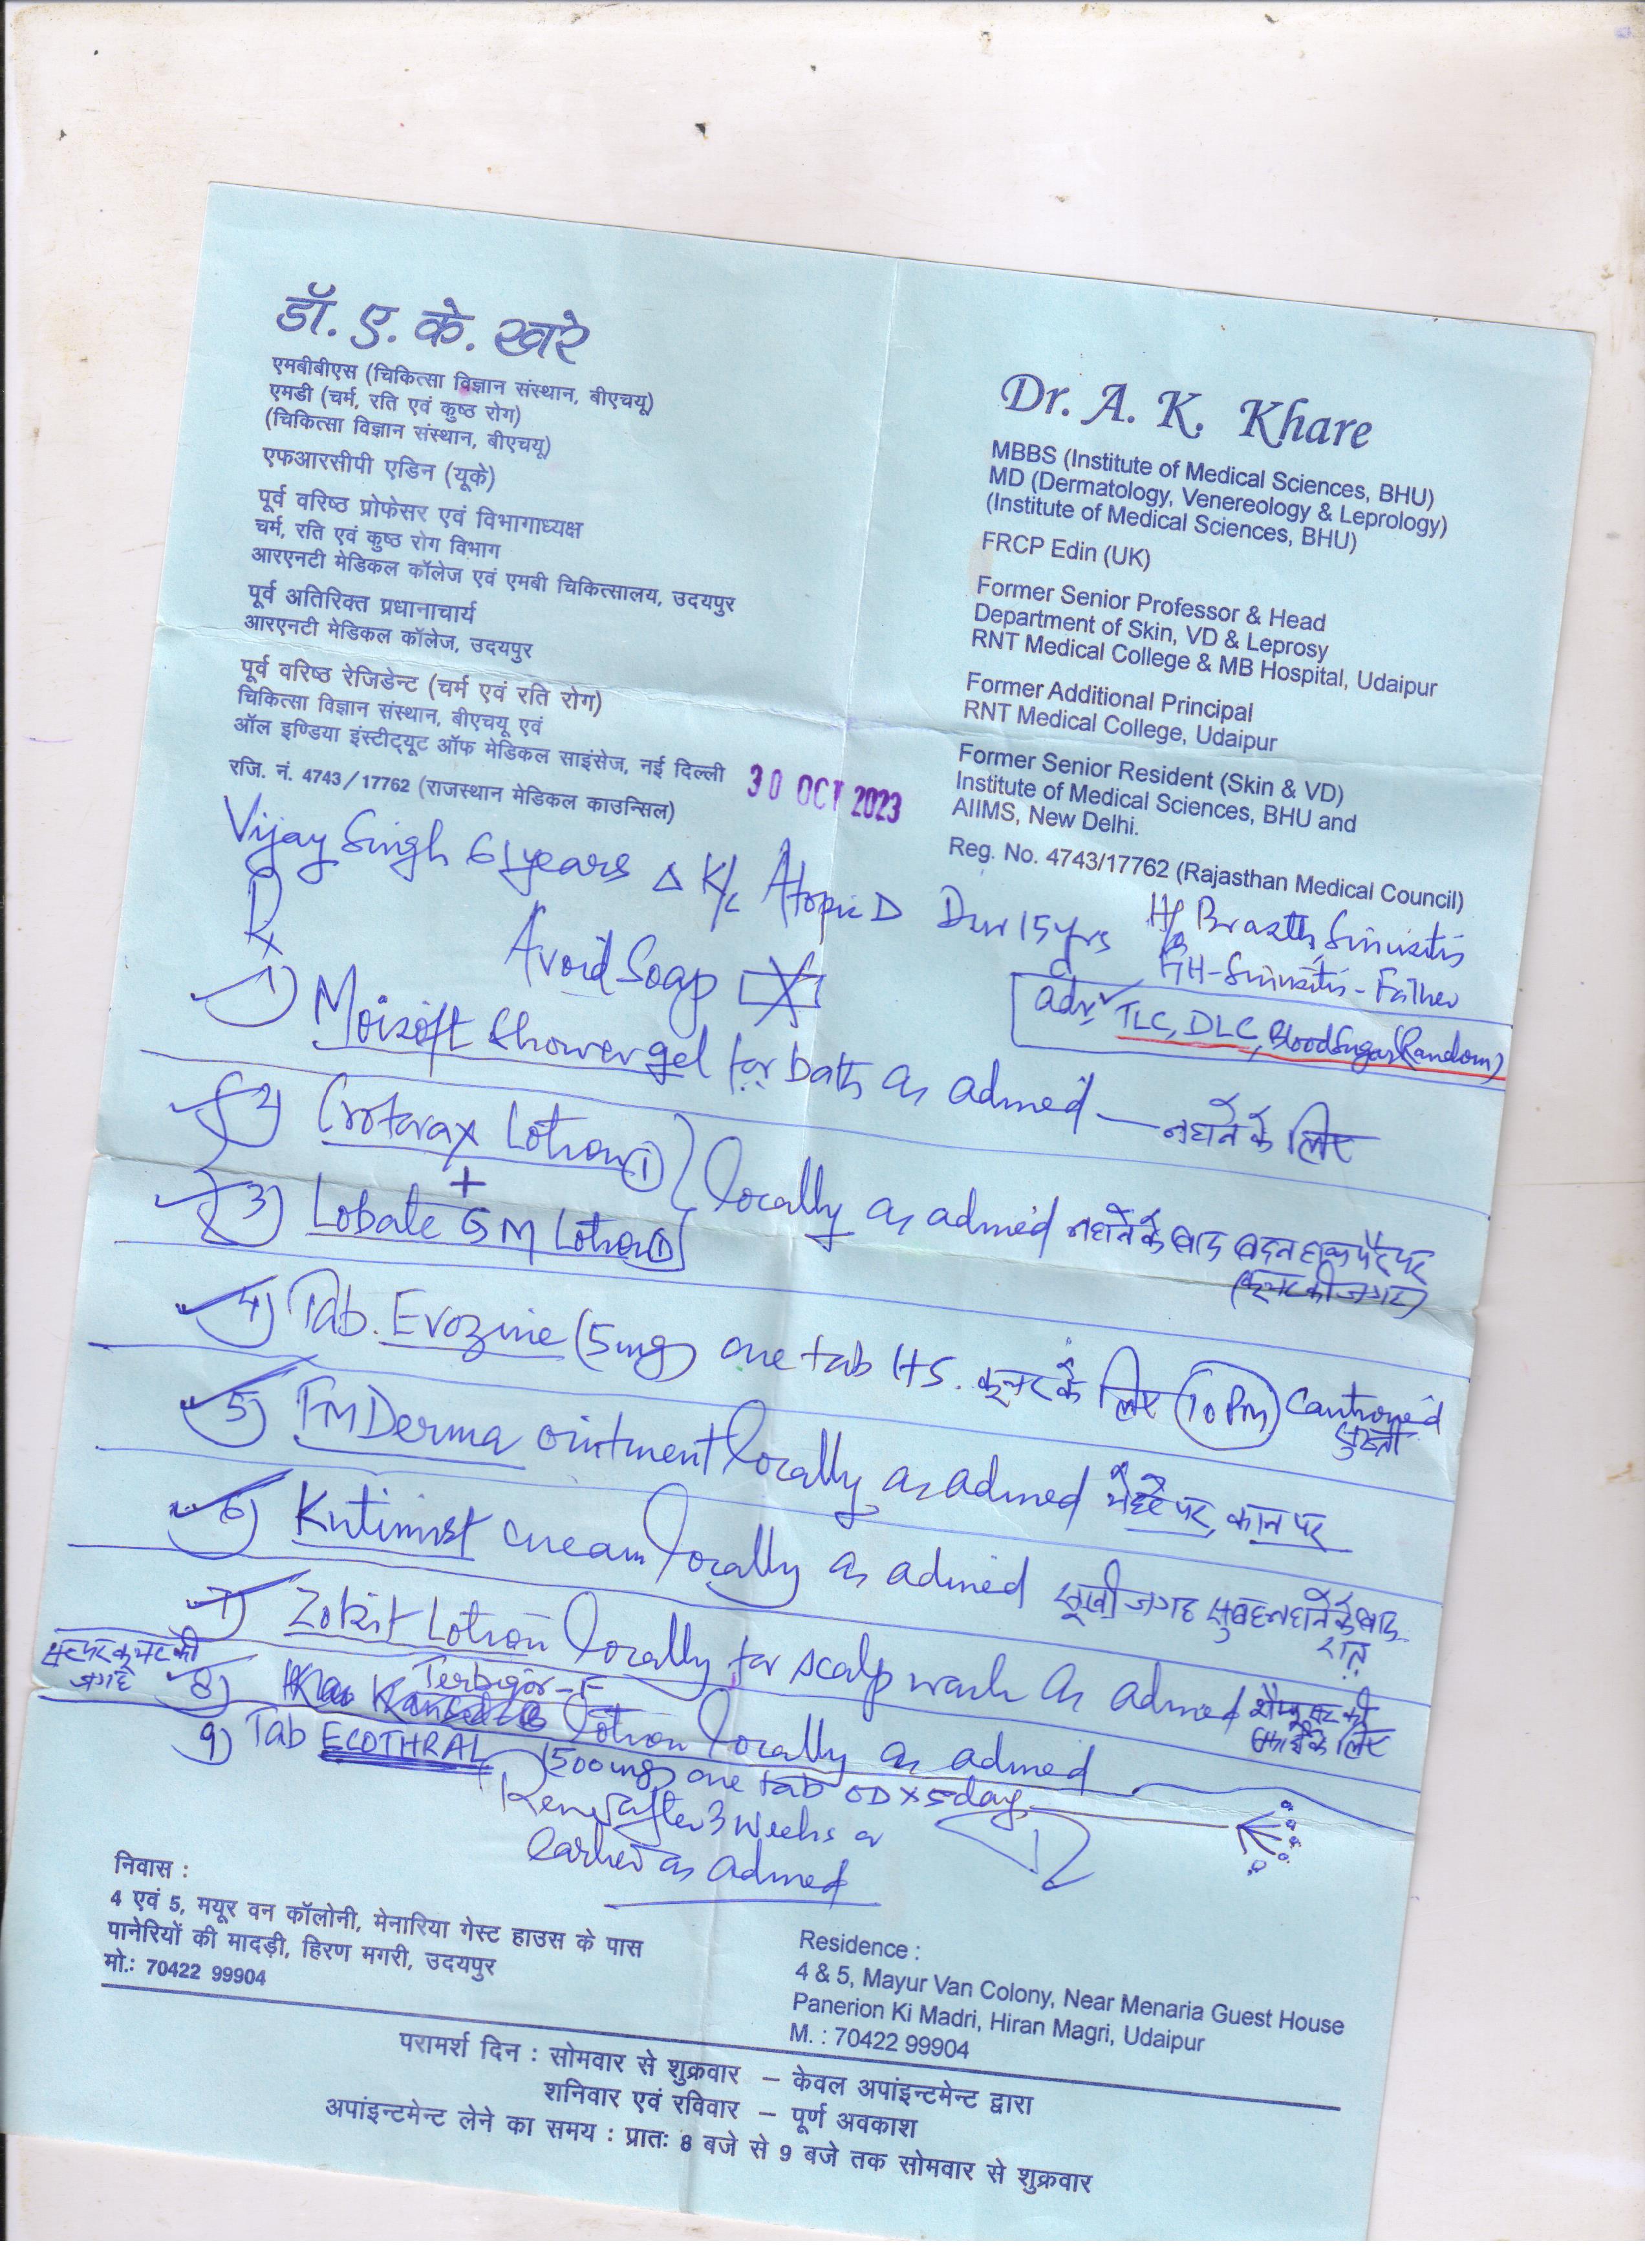 डॉ. ए. के. खरे
एमबीबीएस (चिकित्सा विज्ञान संस्थान, बीएचयू)
एमडी (चर्म, रति एवं कुष्ठ रोग)
(चिकित्सा विज्ञान संस्थान, बीएचयू)
एफआरसीपी एडिन (यूके)
पूर्व वरिष्ठ प्रोफेसर एवं विभागाध्यक्ष
चर्म, रति एवं कुष्ठ रोग विभाग
आरएनटी मेडिकल कॉलेज एवं एमबी चिकित्सालय, उदयपुर
पूर्व अतिरिक्त प्रधानाचार्य
आरएनटी मेडिकल कॉलेज, उदयपुर
पूर्व वरिष्ठ रेजिडेन्ट (चर्म एवं रति रोग)
चिकित्सा विज्ञान संस्थान, बीएचयू एवं
ऑल इण्डिया इंस्टीट्यूट ऑफ मेडिकल साइंसेज, नई दिल्ली
रजि. नं. 4743/17762 (राजस्थान मेडिकल काउन्सिल)
30 OCT 2023
Dr. A. K. Khare
MBBS (Institute of Medical Sciences, BHU)
MD (Dermatology, Venereology & Leprology)
(Institute of Medical Sciences, BHU)
FRCP Edin (UK)
Former Senior Professor & Head
Department of Skin, VD & Leprosy
RNT Medical College & MB Hospital, Udaipur
Former Additional Principal
RNT Medical College, Udaipur
Former Senior Resident (Skin & VD)
Institute of Medical Sciences, BHU and
AIIMS, New Delhi.
Reg. No. 4743/17762 (Rajasthan Medical Council)
Vijay Singh 61 years Δ K/c Atopic D Dur 15 yrs
Sinusitis
FH - Sinusitis - Father
Rx Avoid Soap
Adv TLC, DLC, Blood Sugar (Random)
1) Moisoft Shower gel for bath as advised — नहाने के लिए
2) Crotorax Lotion ①
+
3) Lobate GM Lotion ① locally as advised नहाने के बाद बदन हाथ पैर पर
(खुजली की जगह)
4) Tab. Evozine (5mg) one tab HS. खुजली के लिए (10 PM) Cautioned
सुस्ती
5) FM Derma ointment locally as advised चेहरे पर, कान पर
6) Kutimist cream locally as advised सूखी जगह सुबह नहाने के बाद
रात
7) Zokit Lotion locally for scalp wash as advised शैम्पू सर की
सफाई के लिए
8) Terbigor-F
Lotion locally as advised
9) Tab ECOTHRAL (500mg) one tab OD x 5 day
Review after 3 weeks or
earlier as advised
निवास :
4 एवं 5, मयूर वन कॉलोनी, मेनारिया गेस्ट हाउस के पास
पानेरियों की मादड़ी, हिरण मगरी, उदयपुर
मो.: 70422 99904
Residence :
4 & 5, Mayur Van Colony, Near Menaria Guest House
Panerion Ki Madri, Hiran Magri, Udaipur
M. : 70422 99904
परामर्श दिन : सोमवार से शुक्रवार – केवल अपांइन्टमेन्ट द्वारा
शनिवार एवं रविवार – पूर्ण अवकाश
अपांइन्टमेन्ट लेने का समय : प्रातः 8 बजे से 9 बजे तक सोमवार से शुक्रवार